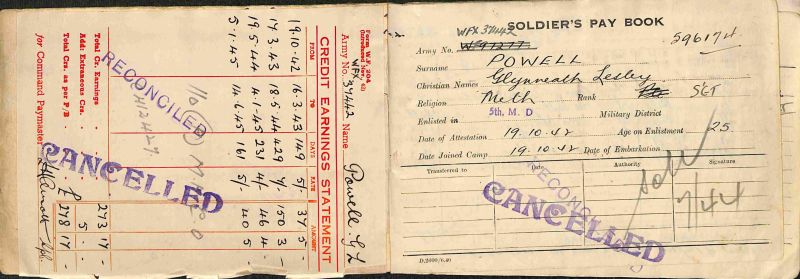 Form W.F. 204
Army No. WFX 37442 Name Powell G L
CREDIT EARNINGS STATEMENT
FROM TO DAYS RATE AMOUNT
19.10.42 16.3.43 149 5/- 37 5 -
17.3.43 18.5.44 429 7/- 150 3 -
19.5.44 4.1.45 231 4/- 46 4 -
5.1.45 14.6.45 161 5/- 40 5 -
RECONCILED
CANCELLED
Total Cr. Earnings 273 17 -
Add: Extraneous Crs. 5 -
Total Crs. as per P/B £ 278 17 -
for Command Paymaster
SOLDIER'S PAY BOOK
WFX 37442
596174
Army No. W91277
Surname POWELL
Christian Names Glynneath Lesley
Religion Meth Rank Pte SGT
Enlisted in 5th. M. D Military District
Date of Attestation 19.10.42 Age on Enlistment 25
Date Joined Camp 19.10.42 Date of Embarkation
Transferred to Date Authority Signature
RECONCILED
CANCELLED
7/44
D.2400/6.40